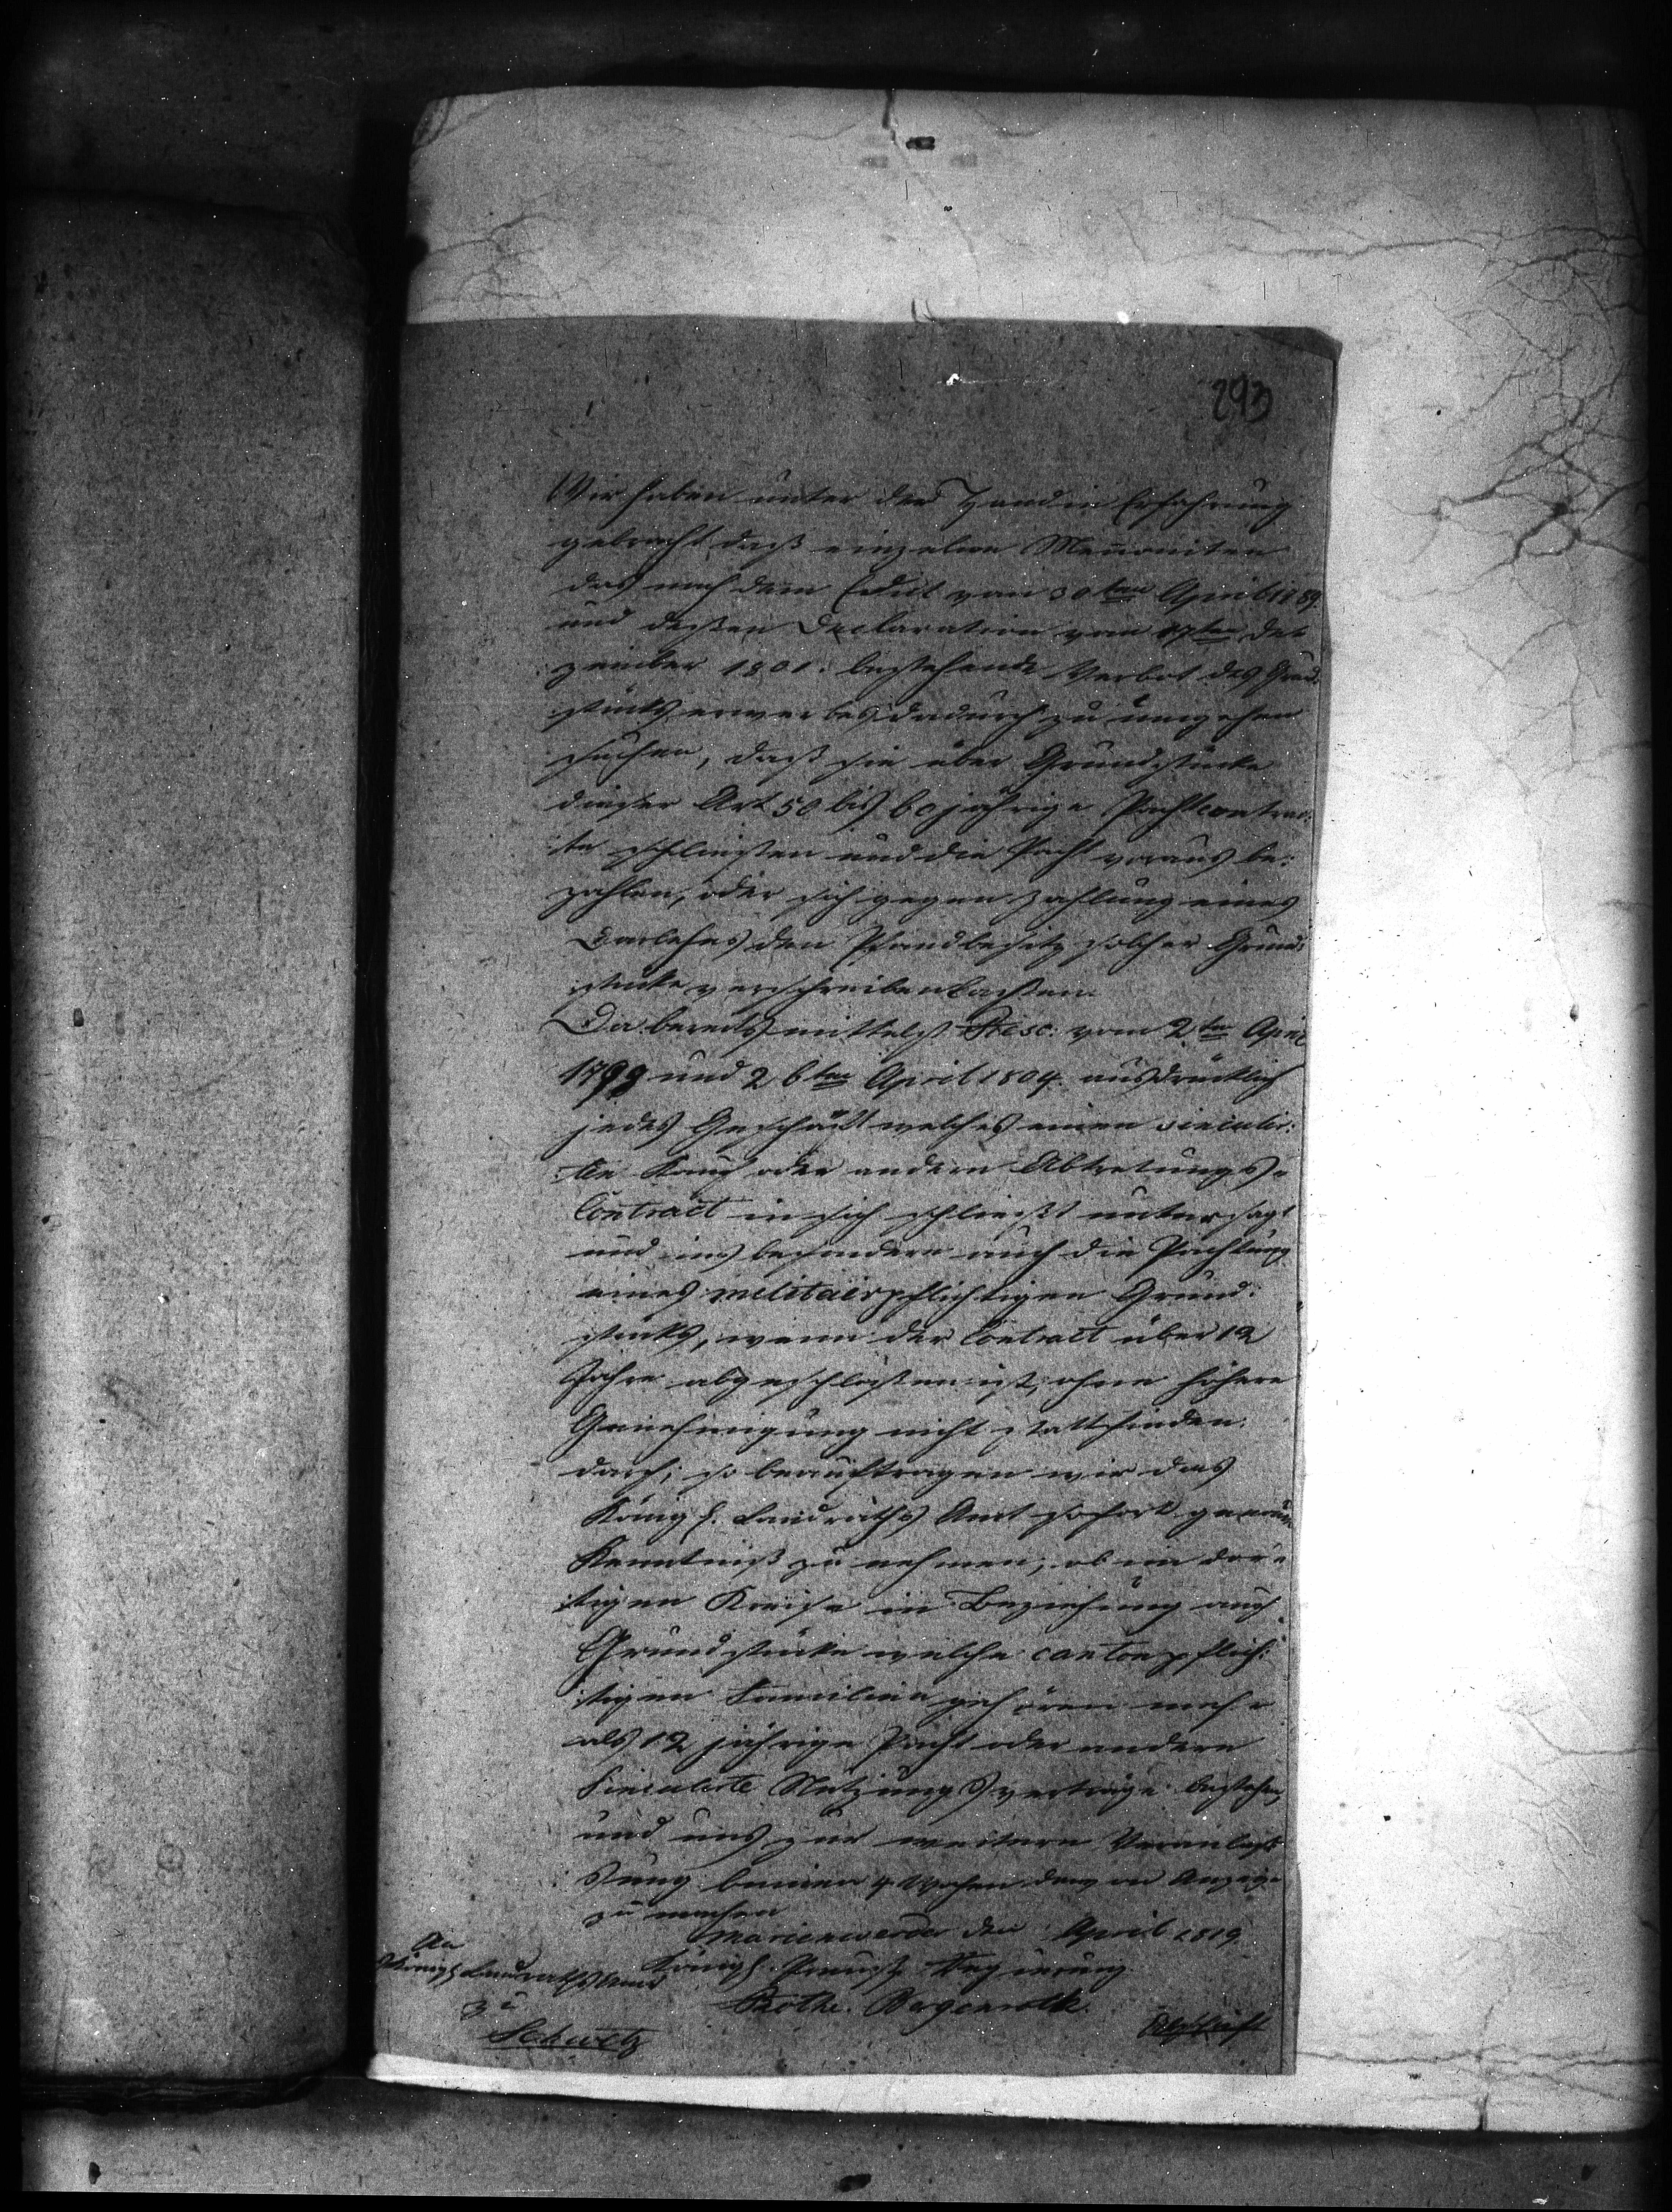 293
Wir haben unter der Hand in Erfahrung
gebracht, daß einzelne Mennoniten
das nach dem Edict vom 30ten April 1789
und deßen Declaration vom 17ten De¬
zember 1801. bestehende Verbot des Grund¬
stücks erwerbes dadurch zu umgehen
suchen, daß sie über Grundstücke
dieser Art 50 bis 60 jährige Pachtcontrac¬
te schließen und die Pacht voraus be¬
zahlen, oder sich gegen Zahlung eines
Darlehns den Pfandbesitz solcher Grund¬
stücke verschreiben laßen.
Da bereits mittelst Resc: vom 2ten April
1799 und 26ten April 1804. ausdrücklich
jedes Geschäft welches einen simulir¬
ten Kauf oder andern Abtretungs¬
Contract in sich schließt untersagt
und ins besondere auch die Pachtung
eines militairpflichtigen Grund¬
stücks, wenn der Contract über 12
Jahre abgeschloßen ist, ohne höhere
Genehmigung nicht stattfinden
darf; so beauftragen wir das
Königl. Landraths Amt sofort genaue
Kenntniß zu nehmen, ob im dor¬
tigen Kreise in Beziehung auf
Grundstücke welche cantonpflich¬
tigen Familien gehören mehr
als 12 jährige Pacht oder andere
simulirte Nutzungsverträge bestehen
und uns zur weitern Veranlas¬
sung binnen 4 Wochen davon Anzeige
zu machen
Marienwerder den April 1819
Königl. Preuß. Regierung.
Rothe. Bergenroth.
An
Königl Landraths Amt
zu
Schwetz